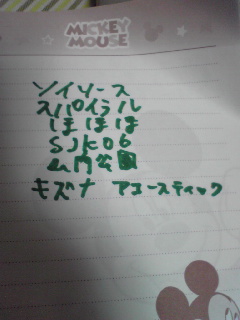 MICKEY
MOUSE
ソイソース
スパイラル
ほほほ
SJK06
キズナ アコースティック